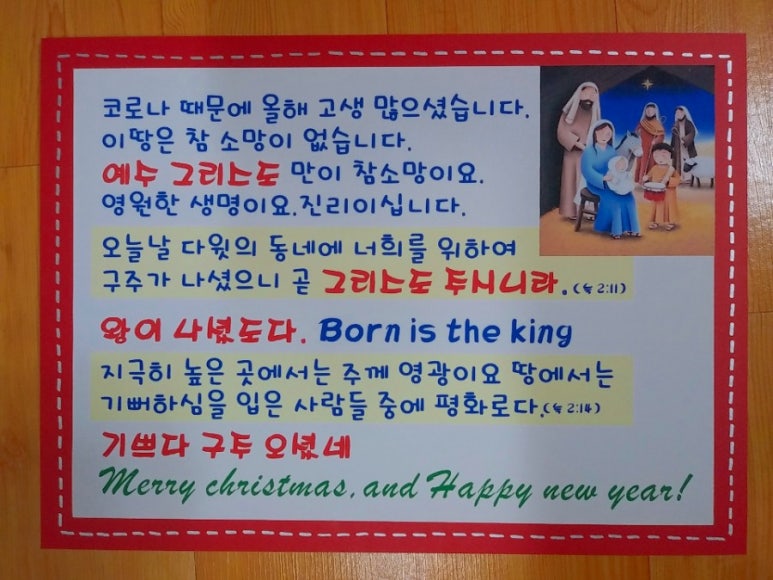 코로나 때문에 올해 고생 많으셨습니다.
이땅은 참 소망이 없습니다.
예수 그리스도 만이 참소망이요.
영원한 생명이요.진리이십니다.
오늘날 다윗의 동네에 너희를 위하여
구주가 나셨으니 곧 그리스도 주시니라.(눅 2:11)
왕이 나셨도다. Born is the king
지극히 높은 곳에서는 주께 영광이요 땅에서는
기뻐하심을 입은 사람들 중에 평화로다.(눅 2:14)
기쁘다 구주 오셨네
Merry christmas, and Happy new year!